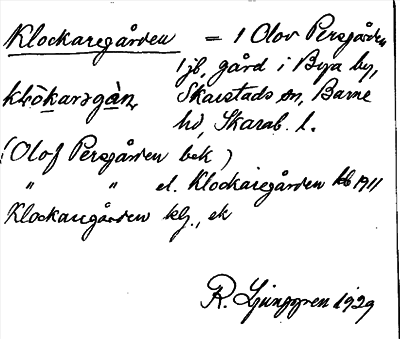 Klockaregården = 1 Olov Persgården
1 jb, gård i Bya by,
Skarstads sn, Barne
hd, Skarab. l.
(Olof Persgården bek)
" " el. Klockaregården kb 1911
Klockaregården klj., ek
R. Ljunggren 1929